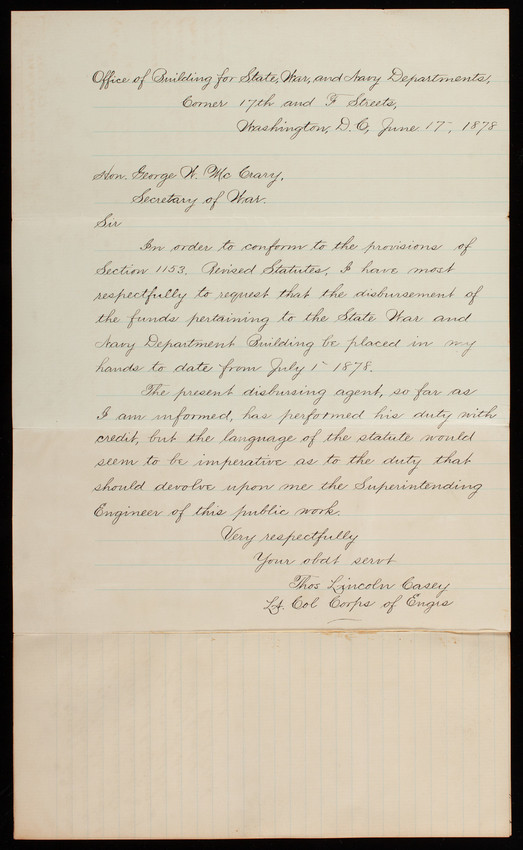 Office of Building for State, War, and Navy Departments,
Corner 17th and F Streets,
Washington, D.C, June 17, 1878
Hon. George W. McCrary,
Secretary of War.
Sir
In order to conform to the provisions of
Section 1153. Revised Statutes, I have most
respectfully to request that the disbursement of
the funds pertaining to the State War and
Navy Department Building be placed in my
hands to date from July 1 - 1878.
The present disbursing agent, so far as
I am informed, has performed his duty with
credit, but the language of the statute would
seem to be imperative as to the duty that
should devolve upon me the Superintending
Engineer of this public work.
Very respectfully
Your obdt servt
Thos Lincoln Casey
Lt. Col Corps of Engrs